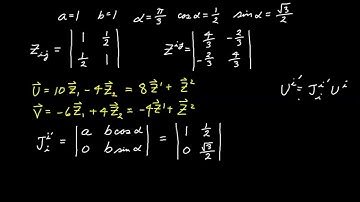 a=1 b=1 α=π/3 cosα=1/2 sinα=√3/2
Z_ij = | 1 1/2 ; 1/2 1 | Z^ij = | 4/3 -2/3 ; -2/3 4/3 |
U⃗ = 10 Z⃗_1 - 4 Z⃗_2 = 8 Z⃗^1 + Z⃗^2
V⃗ = -6 Z⃗_1 + 4 Z⃗_2 = -4 Z⃗^1 + Z⃗^2
U^i' = J^i'_i U^i
J^i'_i = | a b cosα ; 0 b sinα | = | 1 1/2 ; 0 √3/2 |